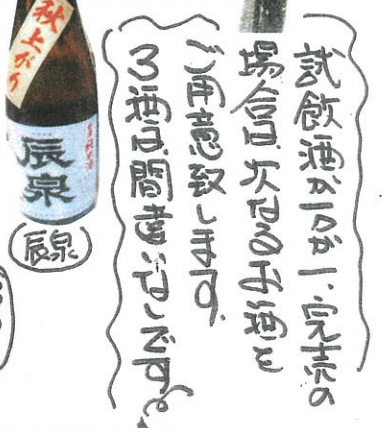 試飲酒が万が一、完売の
場合は次なるお酒を
ご用意致します。
3酒は間違いなしです。
秋上がり
辰泉
(辰泉)